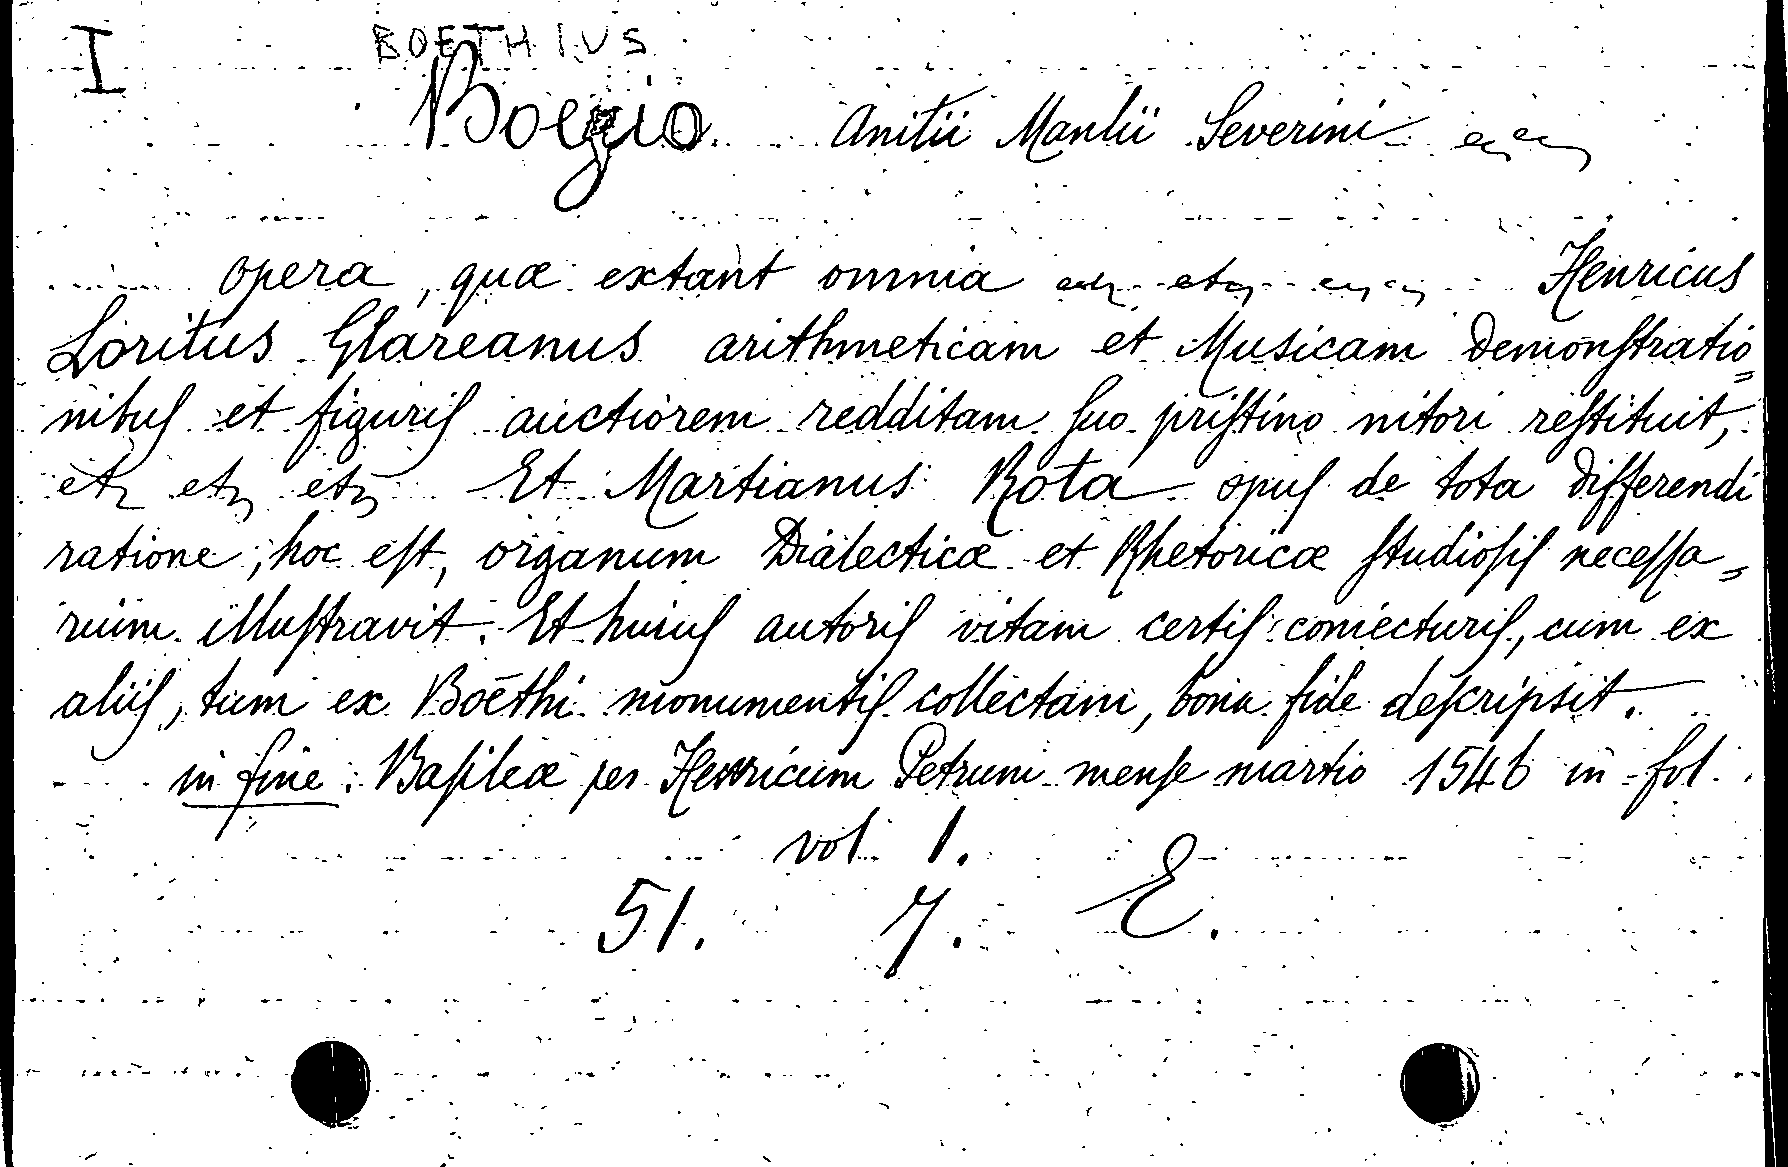 I BOETHIUS
Boezio. Anitii Manlii Severini
opera, quæ extant omnia etc etc etc Henricus
Loritus Glareanus arithmeticam et Musicam demonſtratio=
nibuſ et figuriſ auctiorem redditam ſuo priſtino nitori reſtituit,
etc etc etc Et Martianus Rota opuſ de tota differendi
ratione, hoc eſt, organum Dialecticæ et Rhetoricæ ſtudioſiſ neceſſa=
rium illuſtravit. Et huiuſ autoriſ vitam certiſ coniecturiſ, cum ex
aliiſ, tum ex Boëthi monumentiſ collectam, bona fide deſcripsit.
in fine: Baſileæ per Henricum Petrum menſe martio 1546 in fol.
vol 1.
51. 7. E.